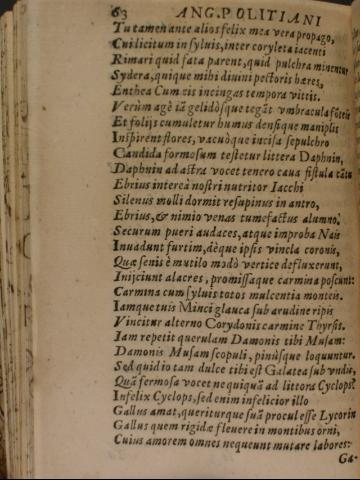 63 ANG. POLITIANI
Tu tamen ante alios felix mea vera propago,
Cui licitum in syluis, inter coryleta iacenti
Rimari quid fata parent, quid pulchra minentur
Sydera, quique mihi diuini pectoris hæres,
Enthea Cum vis incingas tempora vittis.
Verùm agè iã gelidósque tegãt vmbracula fõteis
Et folijs cumuletur humus densique maniplis
Inspirent flores, vacuóque incisa sepulchro
Candida formosum testetur littera Daphnin,
Daphnin ad astra vocet tenero caua fistula cãtu
Ebrius intereà nostri nutritor Iacchi
Silenus molli dormit resupinus in antro,
Ebrius, & nimio venas tumefactus alumno.
Securum pueri audaces, atque improba Nais
Inuadunt furtim, dèque ipsis vincla coronis,
Quæ senis è mutilo modò vertice defluxerunt,
Inijciunt alacres, promissaque carmina poscunt:
Carmina cum syluis totos mulcentia monteis.
Iamque tuis Minci glauca sub arudine ripis
Vincitur alterno Corydonis carmine Thyrsis.
Iam repetit querulam Damonis tibi Musam:
Damonis Musam scopuli, pinùsque loquuntur.
Sed quid io tam dulce tibi est Galatea sub vndis,
Quã fermosa vocet nequiquã ad littora Cyclops?
Infelix Cyclops, sed enim infelicior illo
Gallus amat, queriturque suã procul esse Lycorin
Gallus quem rigidæ fleuere in montibus orni,
Cuius amorem omnes nequeunt mutare labores:
Ga-